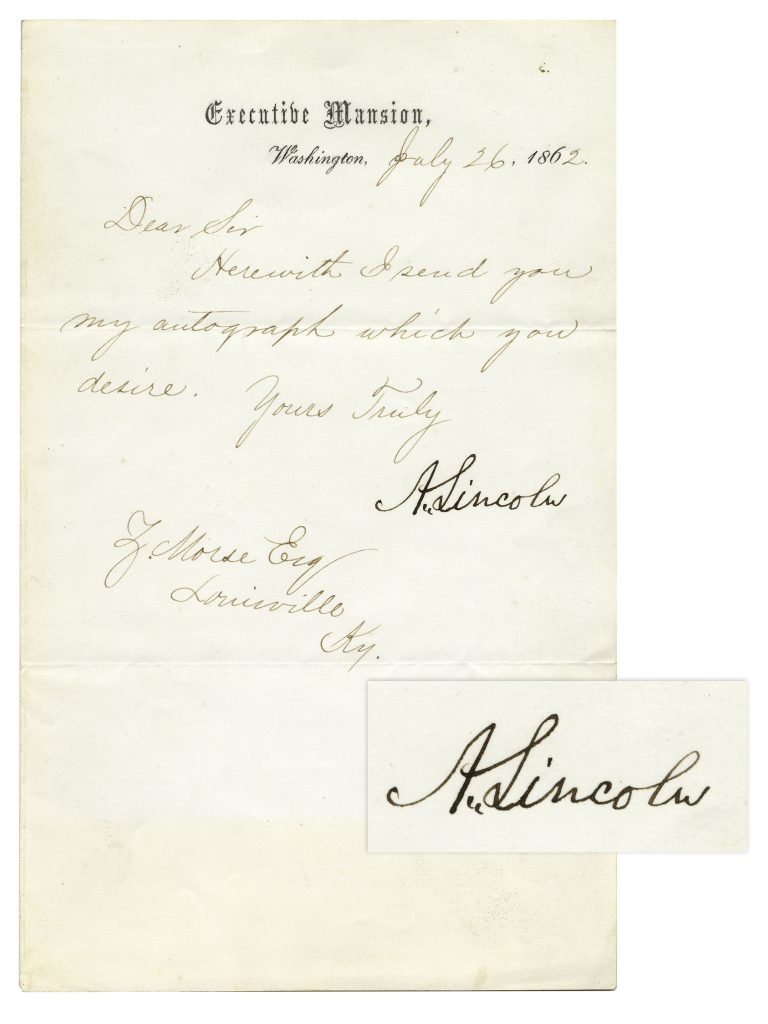 Executive Mansion,
Washington, July 26, 1862.
Dear Sir
Herewith I send you
my autograph which you
desire. Yours Truly
A. Lincoln
Z. Morse Esq
Louisville
Ky.
A. Lincoln